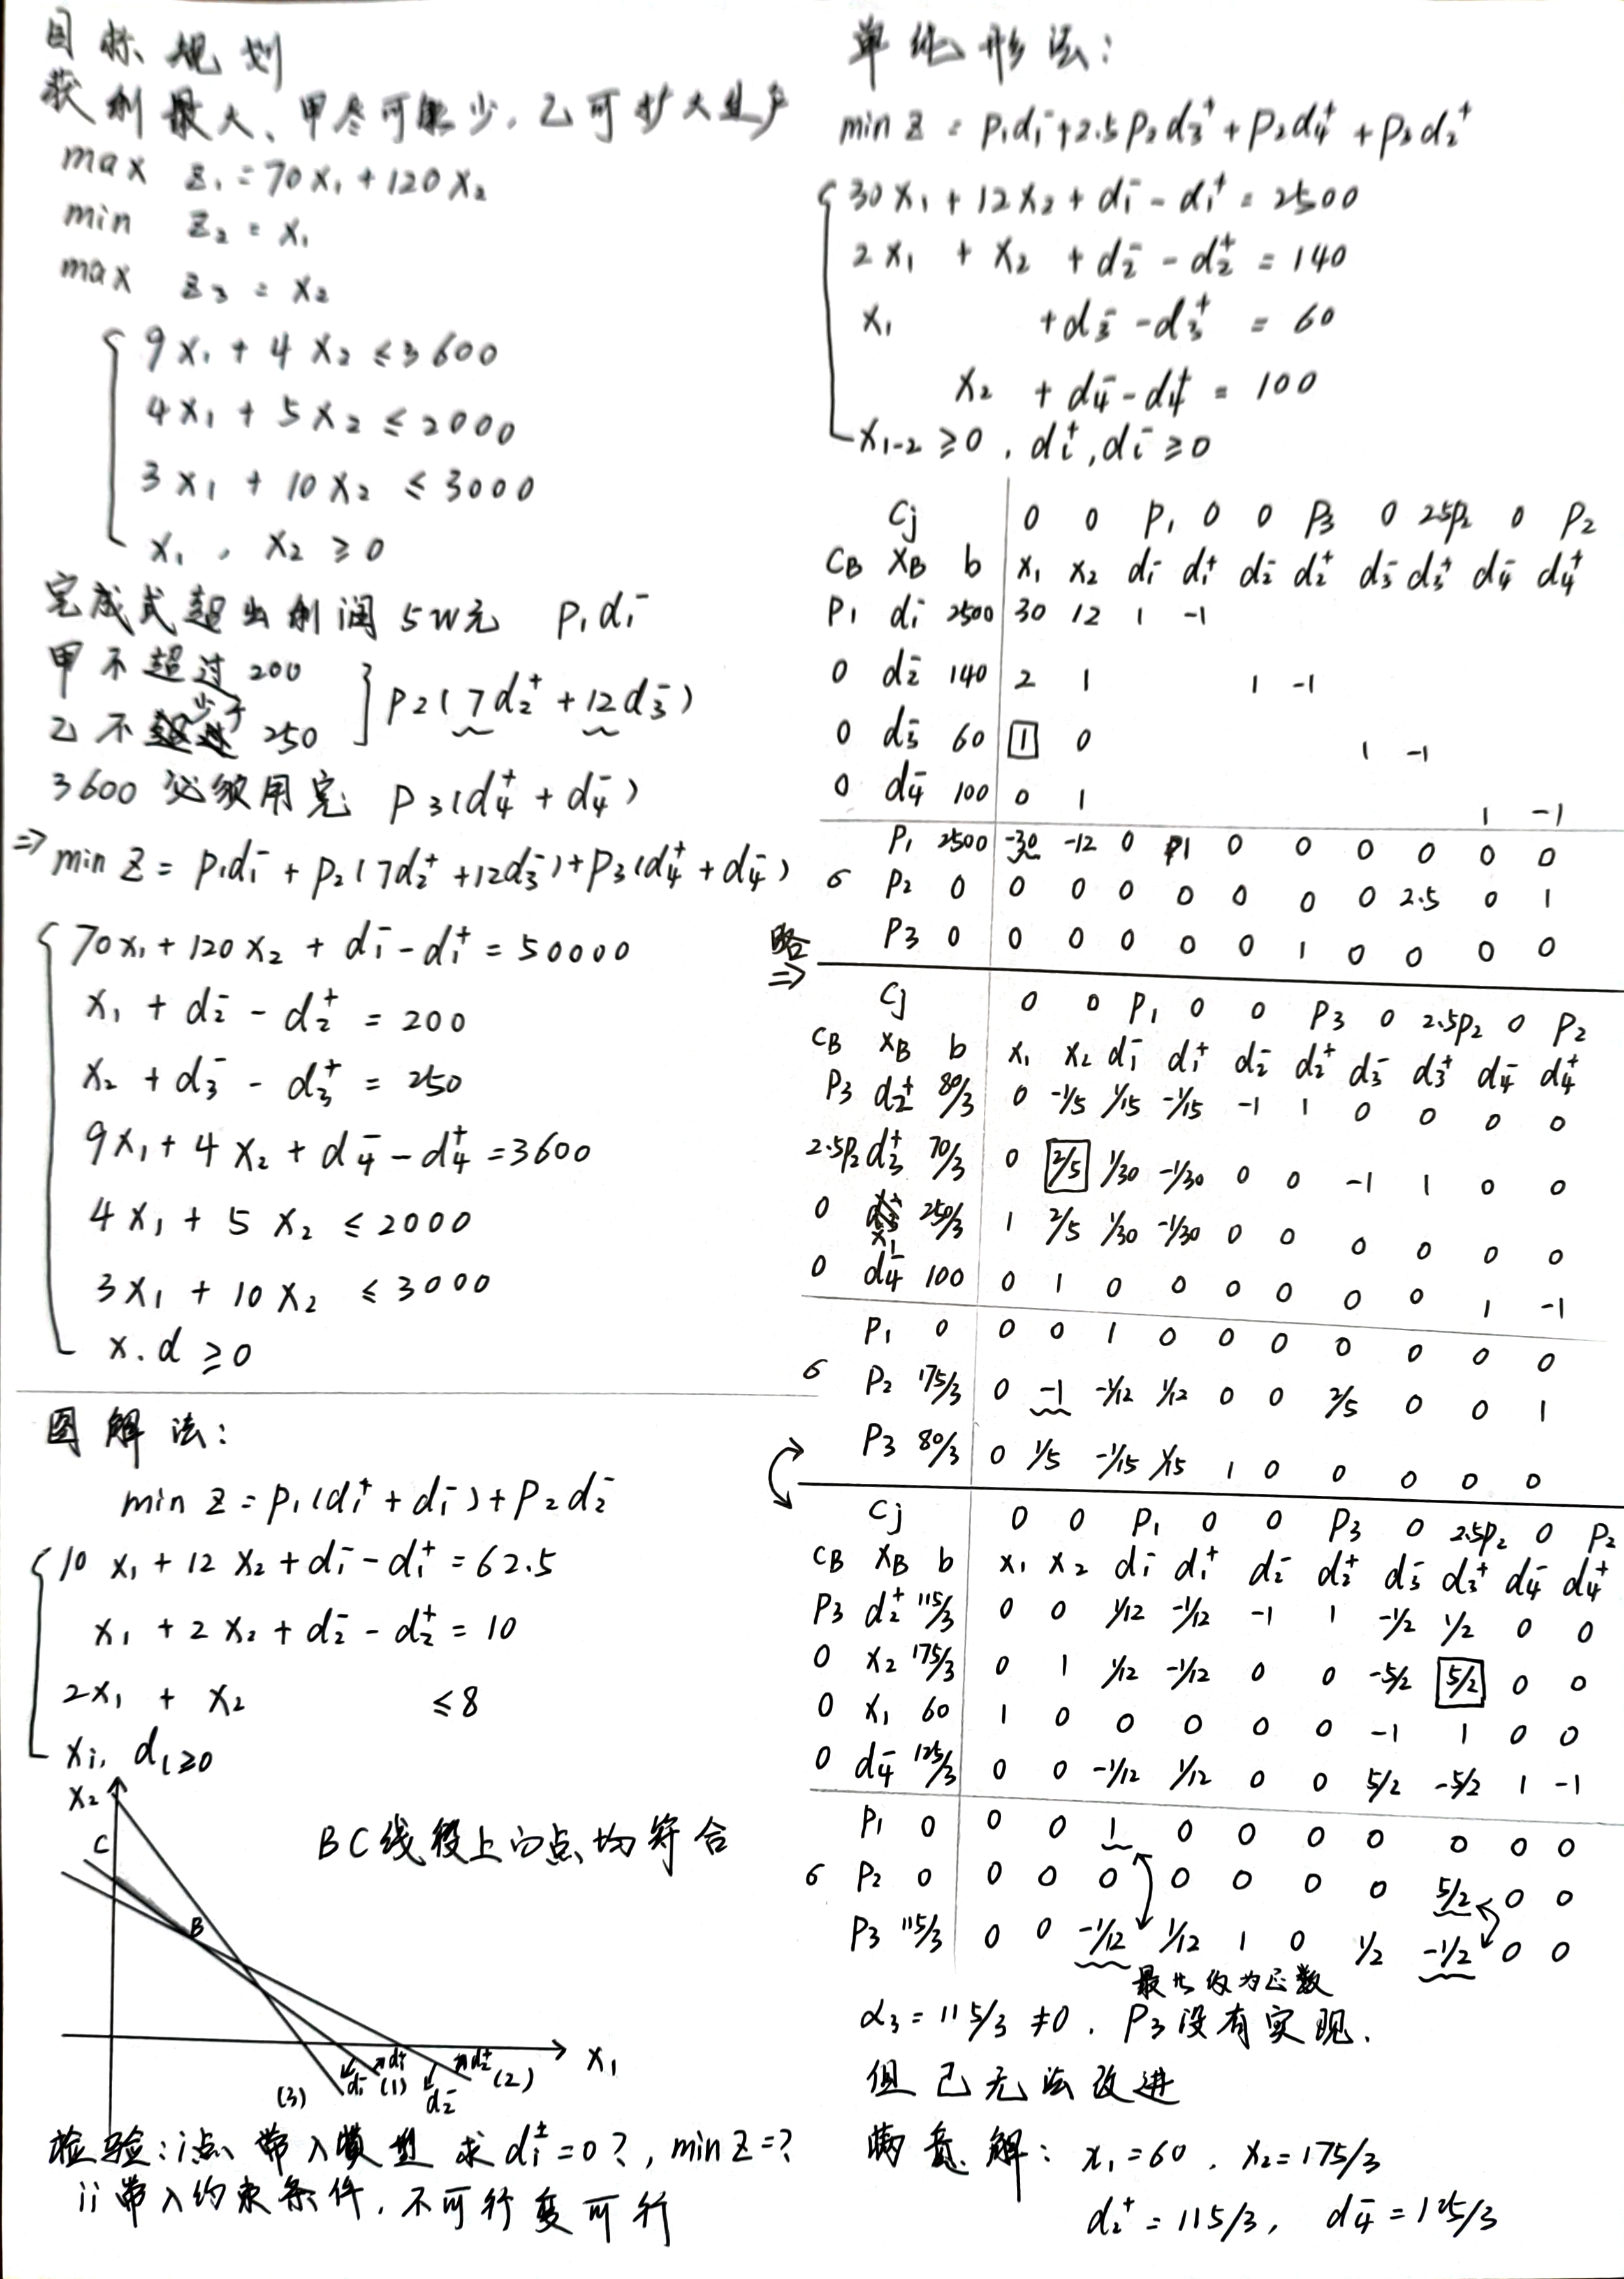 目标规划
获利最大、甲尽可能少，乙可扩大生产
max z₁ = 70x₁ + 120x₂
min z₂ = x₁
max z₃ = x₂
9x₁ + 4x₂ ≤ 3600
4x₁ + 5x₂ ≤ 2000
3x₁ + 10x₂ ≤ 3000
x₁, x₂ ≥ 0
完成或超出利润 5W元 P₁d₁⁻
甲不超过 200
乙不少于 250
} P₂(7d₂⁺ + 12d₃⁻)
3600 必须用完 P₃(d₄⁺ + d₄⁻)
⇒ min Z = P₁d₁⁻ + P₂(7d₂⁺ + 12d₃⁻) + P₃(d₄⁺ + d₄⁻)
70x₁ + 120x₂ + d₁⁻ - d₁⁺ = 50000
x₁ + d₂⁻ - d₂⁺ = 200
x₂ + d₃⁻ - d₃⁺ = 250
9x₁ + 4x₂ + d₄⁻ - d₄⁺ = 3600
4x₁ + 5x₂ ≤ 2000
3x₁ + 10x₂ ≤ 3000
x. d ≥ 0
图解法：
min z = P₁(d₁⁺ + d₁⁻) + P₂d₂⁻
10x₁ + 12x₂ + d₁⁻ - d₁⁺ = 62.5
x₁ + 2x₂ + d₂⁻ - d₂⁺ = 10
2x₁ + x₂ ≤ 8
xᵢ, dᵢ ≥ 0
x₂
C
BC线段上的点均符合
B
x₁
(3) d₁⁻ d₁⁺ (1) d₂⁻ d₂⁺ (2)
检验：i点带入模型 求dᵢ^± = 0？, min Z = ?
ii 带入约束条件，不可行变可行
单纯形法：
min z = P₁d₁⁻ + 2.5P₂d₃⁺ + P₂d₄⁺ + P₃d₂⁺
30x₁ + 12x₂ + d₁⁻ - d₁⁺ = 2500
2x₁ + x₂ + d₂⁻ - d₂⁺ = 140
x₁ + d₃⁻ - d₃⁺ = 60
x₂ + d₄⁻ - d₄⁺ = 100
x₁₋₂ ≥ 0, dᵢ⁺, dᵢ⁻ ≥ 0
Cj 0 0 P₁ 0 0 P₃ 0 2.5P₂ 0 P₂
CB XB b x₁ x₂ d₁⁻ d₁⁺ d₂⁻ d₂⁺ d₃⁻ d₃⁺ d₄⁻ d₄⁺
P₁ d₁⁻ 2500 30 12 1 -1
0 d₂⁻ 140 2 1 1 -1
0 d₃⁻ 60 1 0 1 -1
0 d₄⁻ 100 0 1 1 -1
P₁ 2500 -30 -12 0 1 0 0 0 0 0 0
σ P₂ 0 0 0 0 0 0 0 0 2.5 0 1
P₃ 0 0 0 0 0 0 1 0 0 0 0
略
⇒
Cj 0 0 P₁ 0 0 P₃ 0 2.5P₂ 0 P₂
CB XB b x₁ x₂ d₁⁻ d₁⁺ d₂⁻ d₂⁺ d₃⁻ d₃⁺ d₄⁻ d₄⁺
P₃ d₂⁺ 80/3 0 -1/5 1/15 -1/15 -1 1 0 0 0 0
2.5P₂ d₃⁺ 70/3 0 2/5 1/30 -1/30 0 0 -1 1 0 0
0 x₁ 250/3 1 2/5 1/30 -1/30 0 0 0 0 0 0
0 d₄⁻ 100 0 1 0 0 0 0 0 0 1 -1
P₁ 0 0 0 1 0 0 0 0 0 0 0
σ P₂ 175/3 0 -1 -1/12 1/12 0 0 2/5 0 0 1
P₃ 80/3 0 1/5 -1/15 1/15 1 0 0 0 0 0
Cj 0 0 P₁ 0 0 P₃ 0 2.5P₂ 0 P₂
CB XB b x₁ x₂ d₁⁻ d₁⁺ d₂⁻ d₂⁺ d₃⁻ d₃⁺ d₄⁻ d₄⁺
P₃ d₂⁺ 115/3 0 0 1/12 -1/12 -1 1 -1/2 1/2 0 0
0 x₂ 175/3 0 1 1/12 -1/12 0 0 -5/2 5/2 0 0
0 x₁ 60 1 0 0 0 0 0 -1 1 0 0
0 d₄⁻ 125/3 0 0 -1/12 1/12 0 0 5/2 -5/2 1 -1
P₁ 0 0 0 1 0 0 0 0 0 0 0
σ P₂ 0 0 0 0 0 0 0 0 5/2 0 0
P₃ 115/3 0 0 -1/12 1/12 1 0 1/2 -1/2 0 0
最先级为正数
α₃ = 115/3 ≠ 0. P₃没有实现.
但已无法改进
满意解：x₁ = 60, x₂ = 175/3
d₂⁺ = 115/3, d₄⁻ = 125/3